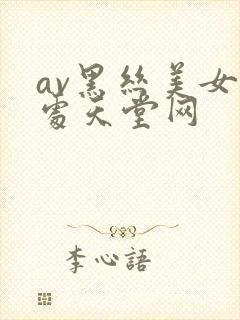 av黑丝美女
処天堂网
李心語